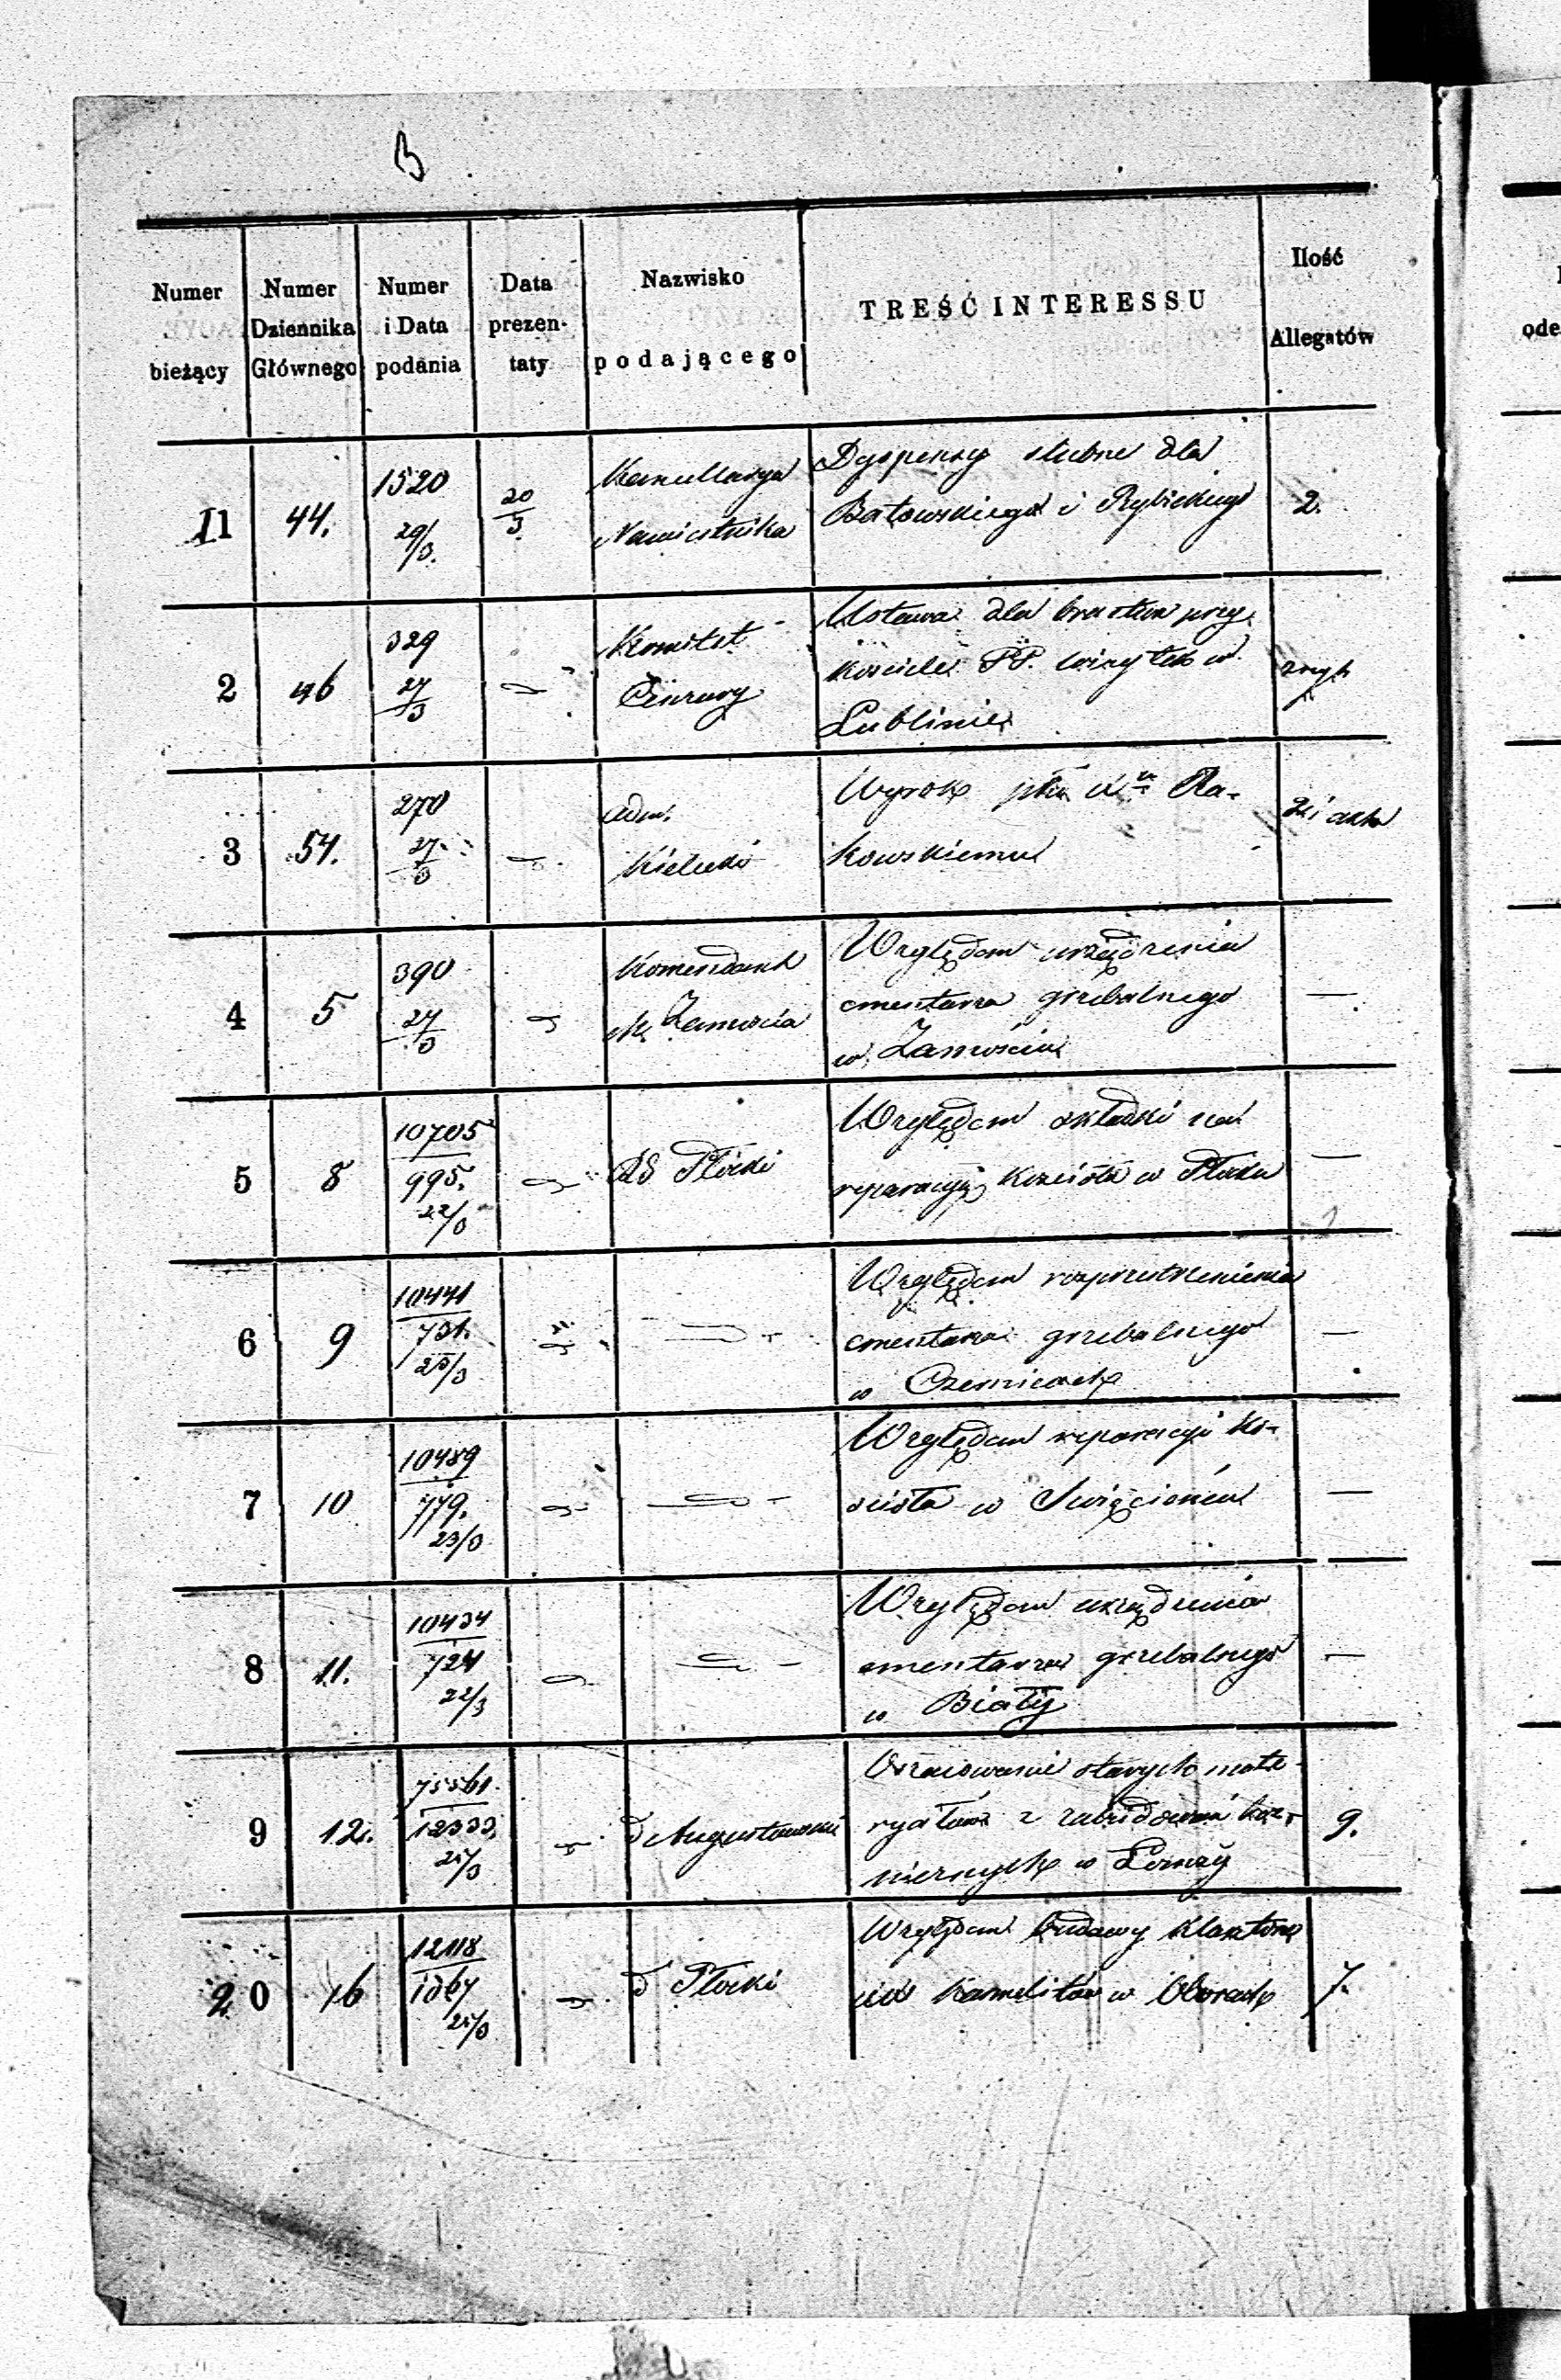 B
Numer
bieżący
Numer
Dziennika
Głównego
Numer
i Data
podania
Data
prezen-
taty
Nazwisko
podającego
TREŚĆ INTERESSU
Ilość
Allegatów
11
44.
1520
29/3.
20/3
Kancellarya
Namiestnika
Dyspensy ślubne dla
Batowskiego i Rybickiego
2.
2
46
329
27/3
Komitet
Cenzury
Ustawa dla bractwa przy
kościele PP. Wizytek w
Lublinie
3
54.
270
27/3
Adm.
Kielecki
Wyrok Ra-
kowskiemu
i akta
4
5
390
27/3
Komendant
Zamościa
Względem urządzenia
cmentarza grzebalnego
w Zamościu
—
5
8
10705
995.
22/3
Płocki
Względem składki na
reparacyę kościoła w Płocku
—
6
9
10441
731.
23/3
Względem rozprzestrzenienia
cmentarza grzebalnego
w
—
7
10
10489
779.
23/3
Względem reparacyi ko-
ścioła w
—
8
11.
10434
724
22/3
Względem urządzenia
cmentarza grzebalnego
w Biały
—
9
12.
21/3
Augustowski
starych mate-
ryałów z zabudowań
w Łomży
9.
20
16
12118
21/3
Płocki
Względem budowy klasztoru
Karmelitów w Oborach
7.